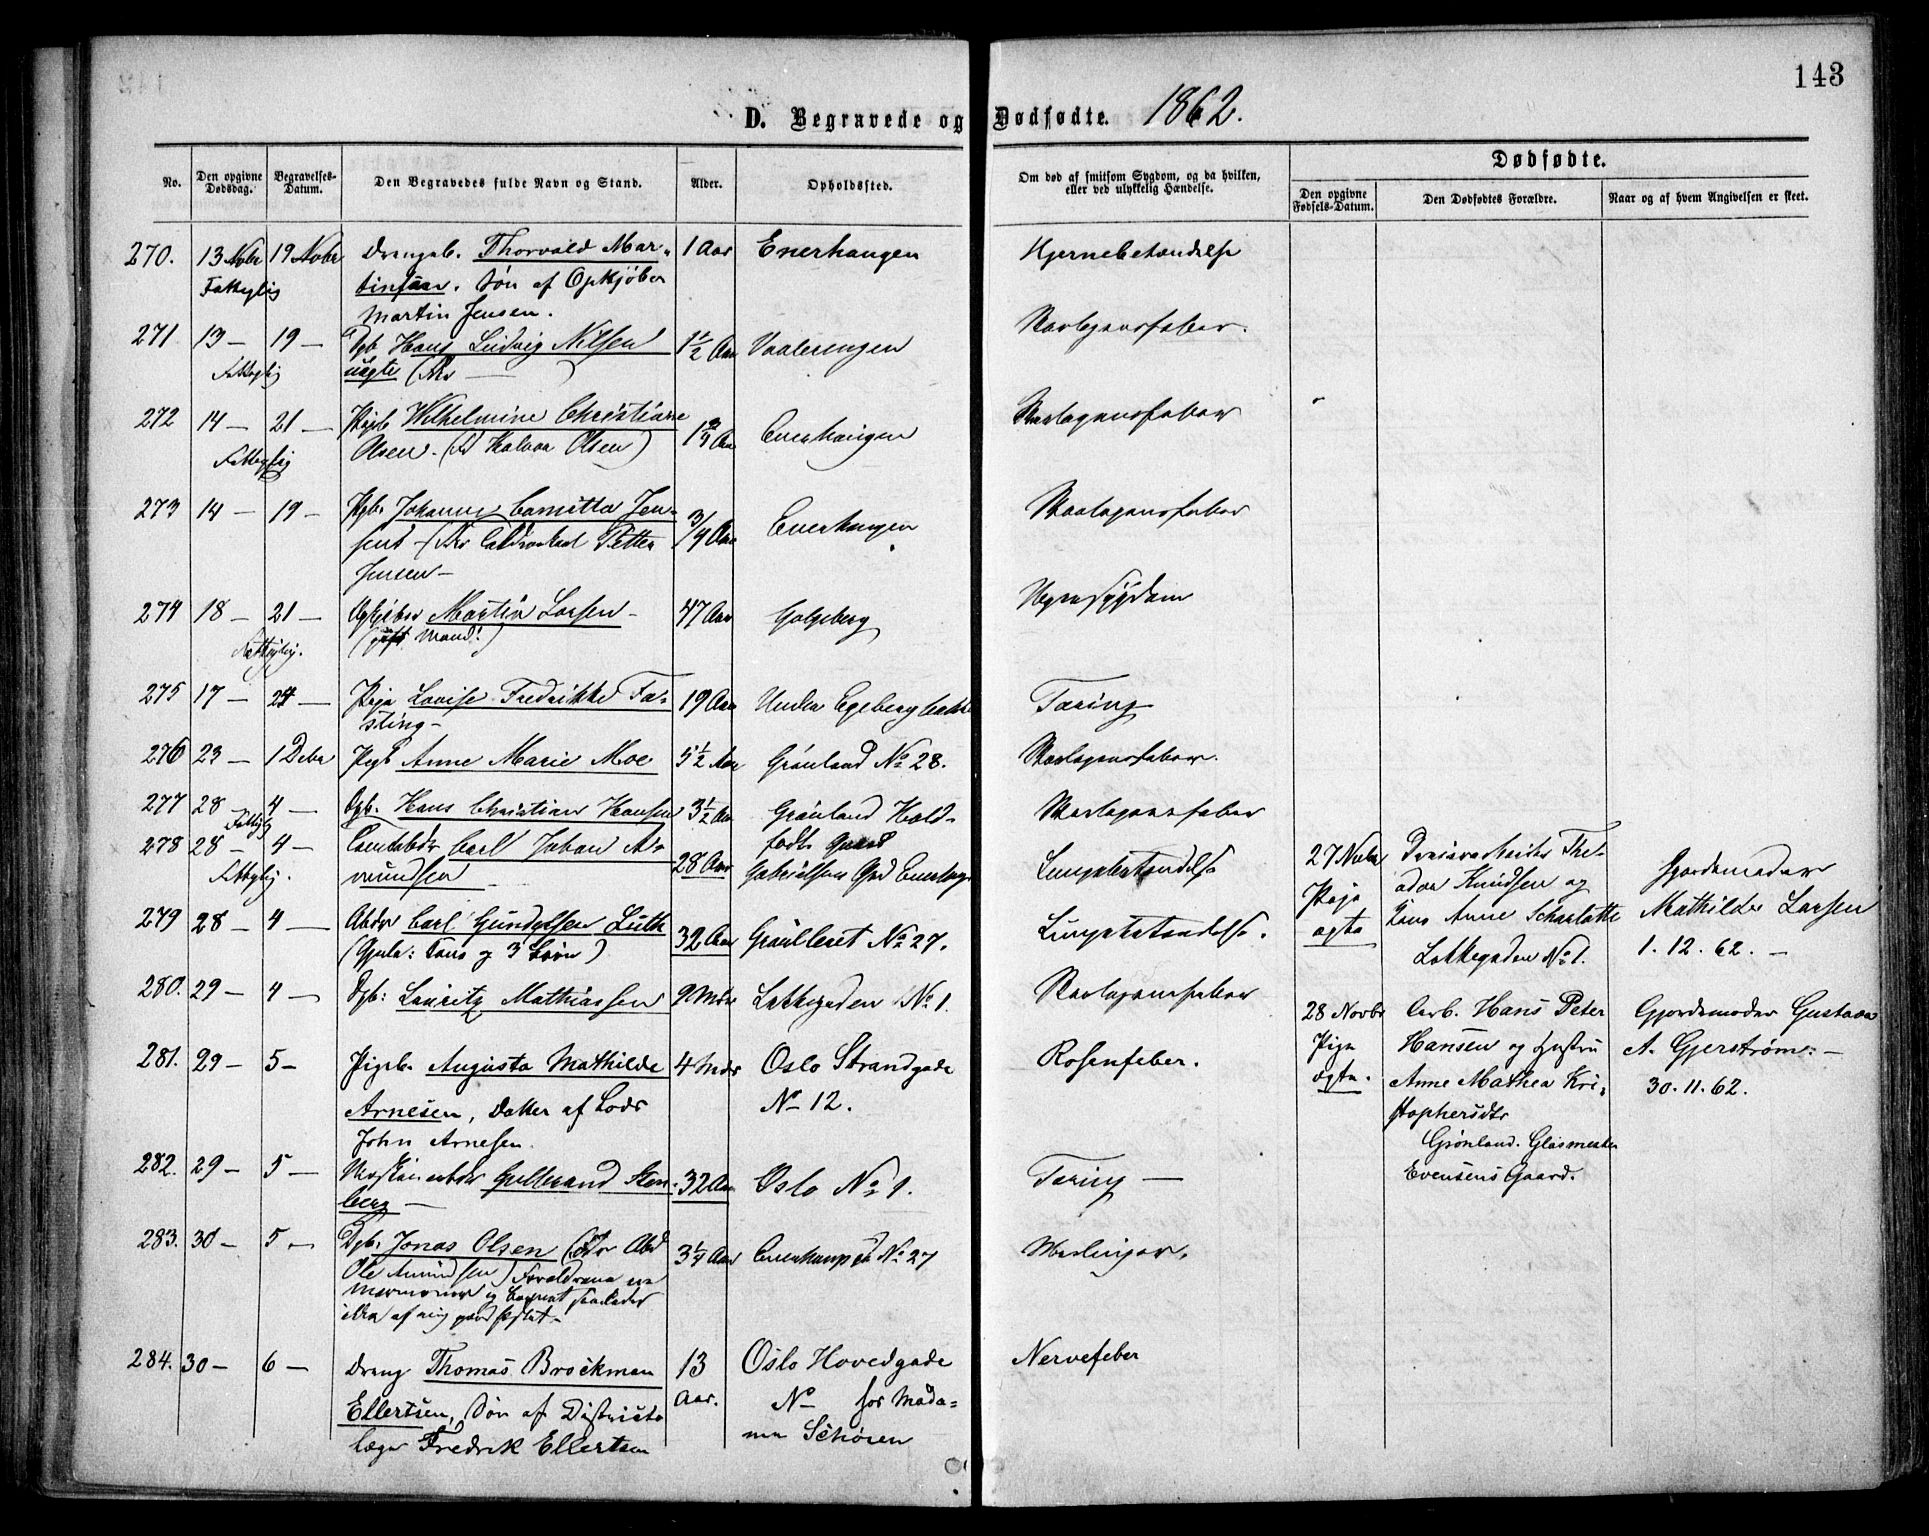 143
D. Begravede og Dødfødte. 1862.
No.
Den opgivne Dødsdag.
Begravelses-Datum.
Den Begravedes fulde Navn og Stand.
Alder.
Opholdssted.
Om død af smitsom Sygdom, og da hvilken, eller ved ulykkelig Hændelse.
Dødfødte.
Den opgivne Fødsels-Datum.
Den Dødfødtes Forældre.
Naar og af hvem Angivelsen er skeet.
270. 13 Novbr 19 Novbr Drengeb. Thorvald Mar- 1 Aar Enerhaugen Hjernebetændelse
Fattiglig tinsen. Søn af Opkjøber
Martin Jensen.
271 13 — 19 — Dgb Hans Ludvig Nilsen 1½ Aar Vaalerengen Skarlagensfeber.
Fattiglig uægte
272 14 — 21 — Pigb Wilhelmine Christiane Enerhaugen Skarlagensfeber
Fattiglig Olsen. Halvor Olsen)
273 14 — 19 — Pgb. Johanne Camitta Jen- 3/4 Aar Enerhaugen Skarlagensfeber
sen Petter
Jensen —
274 18 — 21 — Opkjøber Martin Larsen — 47 Aar Galgeberg
Fattiglig. (gift Mand!)
275 17 — 24 — Pige Lovise Fredrikke Fa- 19 Aar Under Egeberg Tæring
sting —
276 23 — 1 Debr Pigb Anne Marie Moe 5½ Aar Grønland No 28. Skarlagensfeber.
277 28 4 — Dgb. Hans Christian Hansen 3½ Aar Grønland Hold- Skarlagensfeber
Fattiglig fodts Gaard
278 28 — 4 — Carl Johan A- 28 Aar Gabrielsens Grd Lungebetændelse
Fattiglig. mundsen
279 28 — 4 — Abdr Carl Gundersen Lüth 32 Aar Grønlleret No 27. Lungebetændelse.
3 Børn)
280. 29 — 4 — Dgb: Lauritz Mathiassen 9 Mdr Lakkegaden No 1. Skarlagensfeber
281. 29 — 5 — Pigeb. Augusta Mathilde 4 Mdr Oslo Strandgade Rosenfeber.
Arnesen, Datter af Lods No 12.
John Arnesen.
282. 29 — 5 — Gulbrand Sten- 32 Aar Oslo No 1. Tæring —
berg —
283. 30 — 5 — Dgb. Jonas Olsen 3¼ Aar No 27 Meslinger.
Ole Amundsen) Forældrene ere
Mormoner og
af mig
284. 30 — 6 — Dreng Thomas Brockman 13 Aar. Oslo Hovedgade Nervefeber
Ellertsen, Søn af Districts- No — hos Mada-
læge Fredrik Ellertsen me Schøien
27 Novbr
Pige
ægte
Theodor Knudsen og
Anne Scharlotte
Lakkegaden No 1.
Gjordemoder
Mathilde Larsen
1. 12. 62. —
28 Novbr
Pige
ægte.
Hans Peter
Hansen og Hustru
Anne Mathea Kri-
stophersdtr
Grønland. Glasmester
Evensens Gaard.
Gjordemoder Gustava
A. Gjerstrøm: —
30. 11. 62.